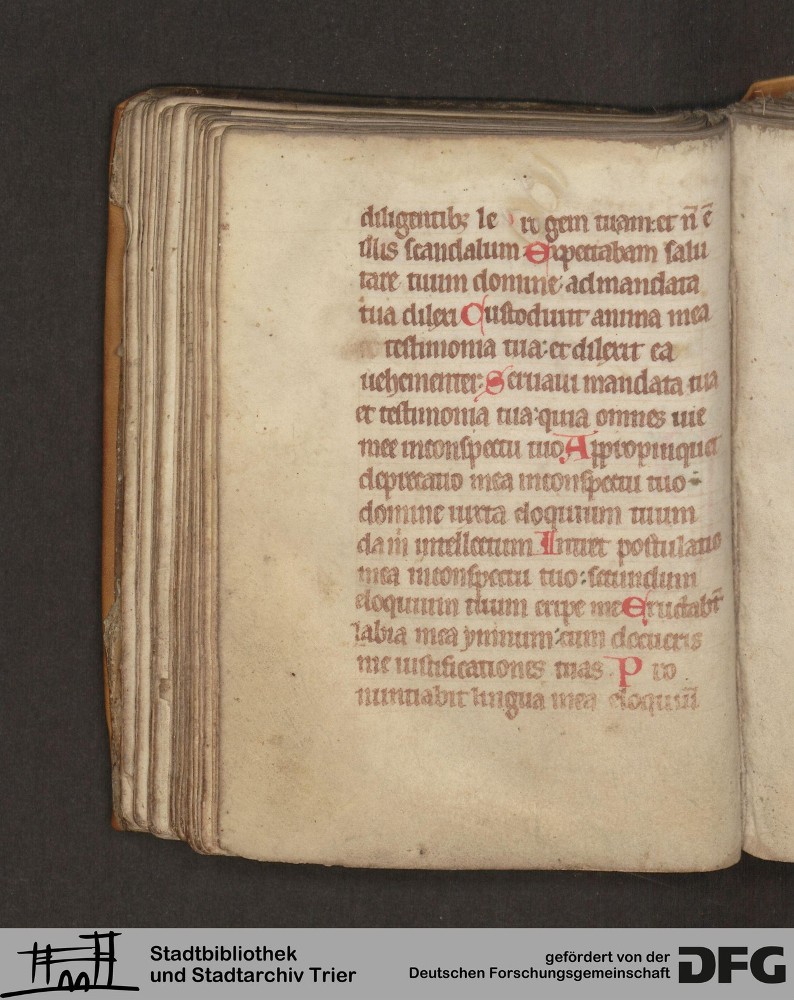 diligentibꝫ le gem tuam: et n̄ ē
illis scandalum Expectabam salu
tare tuum domine: ad mandata
tua dilexi Custodiuit anima mea
testimonia tua: et dilexit ea
uehementer: Seruaui mandata tua
et testimonia tua: quia omnes uie
mee in conspectu tuo Appropinquet
deprecatio mea in conspectu tuo
domine iuxta eloquium tuum
da m̄ intellectum Intret postulatio
mea in conspectu tuo: secundum
eloquium tuum eripe me Eructabt̄
labia mea ymnum: cum docueris
me iustificationes tuas. Pro
nuntiabit lingua mea eloquiū
Stadtbibliothek
und Stadtarchiv Trier
gefördert von der
Deutschen Forschungsgemeinschaft
DFG